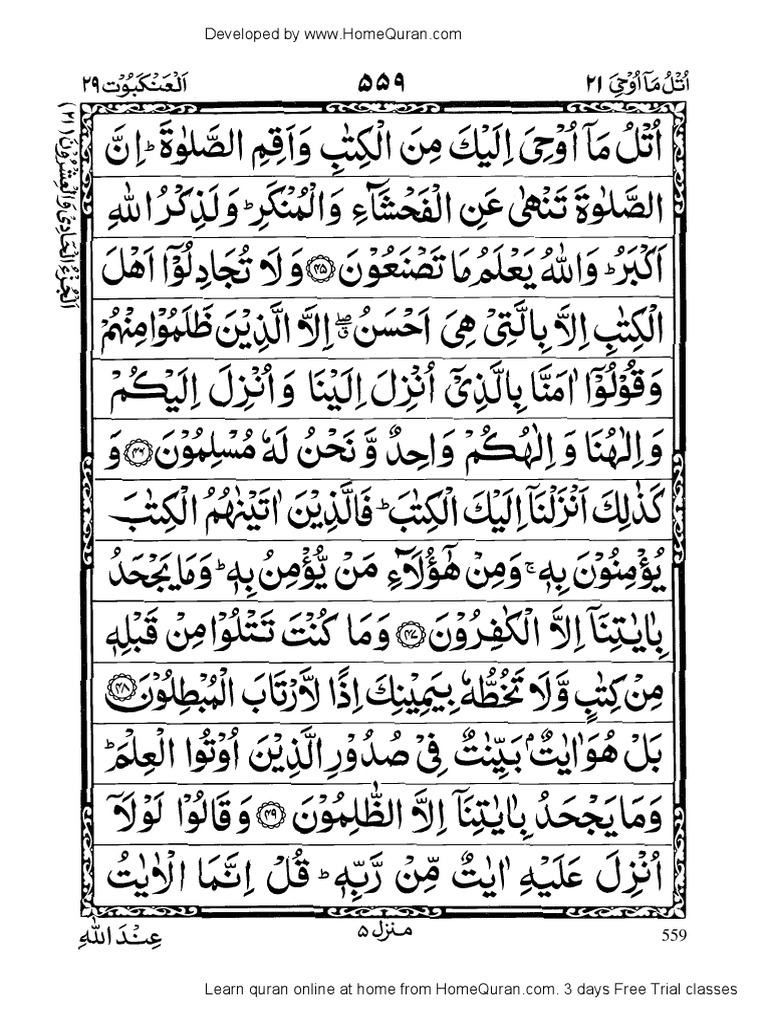 Developed by www.HomeQuran.com
اُتْلُ مَاۤ اُوْحِیَ ۲۱ ۵۵۹ اَلْعَنْكَبُوْت ۲۹
اَلْجُزْءُ الْحَادِیْ وَالْعِشْرُوْنَ (۲۱)
اُتْلُ مَاۤ اُوْحِیَ اِلَیْكَ مِنَ الْكِتٰبِ وَاَقِمِ الصَّلٰوةَ ؕ اِنَّ
الصَّلٰوةَ تَنْهٰی عَنِ الْفَحْشَآءِ وَالْمُنْكَرِ ؕ وَلَذِكْرُ اللّٰهِ
اَكْبَرُ ؕ وَاللّٰهُ یَعْلَمُ مَا تَصْنَعُوْنَ ۴۵ وَلَا تُجَادِلُوْۤا اَهْلَ
الْكِتٰبِ اِلَّا بِالَّتِیْ هِیَ اَحْسَنُ ۖ ق اِلَّا الَّذِیْنَ ظَلَمُوْا مِنْهُمْ
وَقُوْلُوْۤا اٰمَنَّا بِالَّذِیْۤ اُنْزِلَ اِلَیْنَا وَاُنْزِلَ اِلَیْكُمْ
وَاِلٰهُنَا وَاِلٰهُكُمْ وَاحِدٌ وَّنَحْنُ لَهٗ مُسْلِمُوْنَ ۴۶ وَ
كَذٰلِكَ اَنْزَلْنَاۤ اِلَیْكَ الْكِتٰبَ ؕ فَالَّذِیْنَ اٰتَیْنٰهُمُ الْكِتٰبَ
یُؤْمِنُوْنَ بِهٖ ۚ وَمِنْ هٰۤؤُلَآءِ مَنْ یُّؤْمِنُ بِهٖ ؕ وَمَا یَجْحَدُ
بِاٰیٰتِنَاۤ اِلَّا الْكٰفِرُوْنَ ۴۷ وَمَا كُنْتَ تَتْلُوْا مِنْ قَبْلِهٖ
مِنْ كِتٰبٍ وَّلَا تَخُطُّهٗ بِیَمِیْنِكَ اِذًا لَّارْتَابَ الْمُبْطِلُوْنَ ۴۸
بَلْ هُوَ اٰیٰتٌۢ بَیِّنٰتٌ فِیْ صُدُوْرِ الَّذِیْنَ اُوْتُوا الْعِلْمَ ؕ
وَمَا یَجْحَدُ بِاٰیٰتِنَاۤ اِلَّا الظّٰلِمُوْنَ ۴۹ وَقَالُوْا لَوْلَاۤ
اُنْزِلَ عَلَیْهِ اٰیٰتٌ مِّنْ رَّبِّهٖ ؕ قُلْ اِنَّمَا الْاٰیٰتُ
559 منزل ۵ عِنْدَ اللّٰهِ
Learn quran online at home from HomeQuran.com. 3 days Free Trial classes